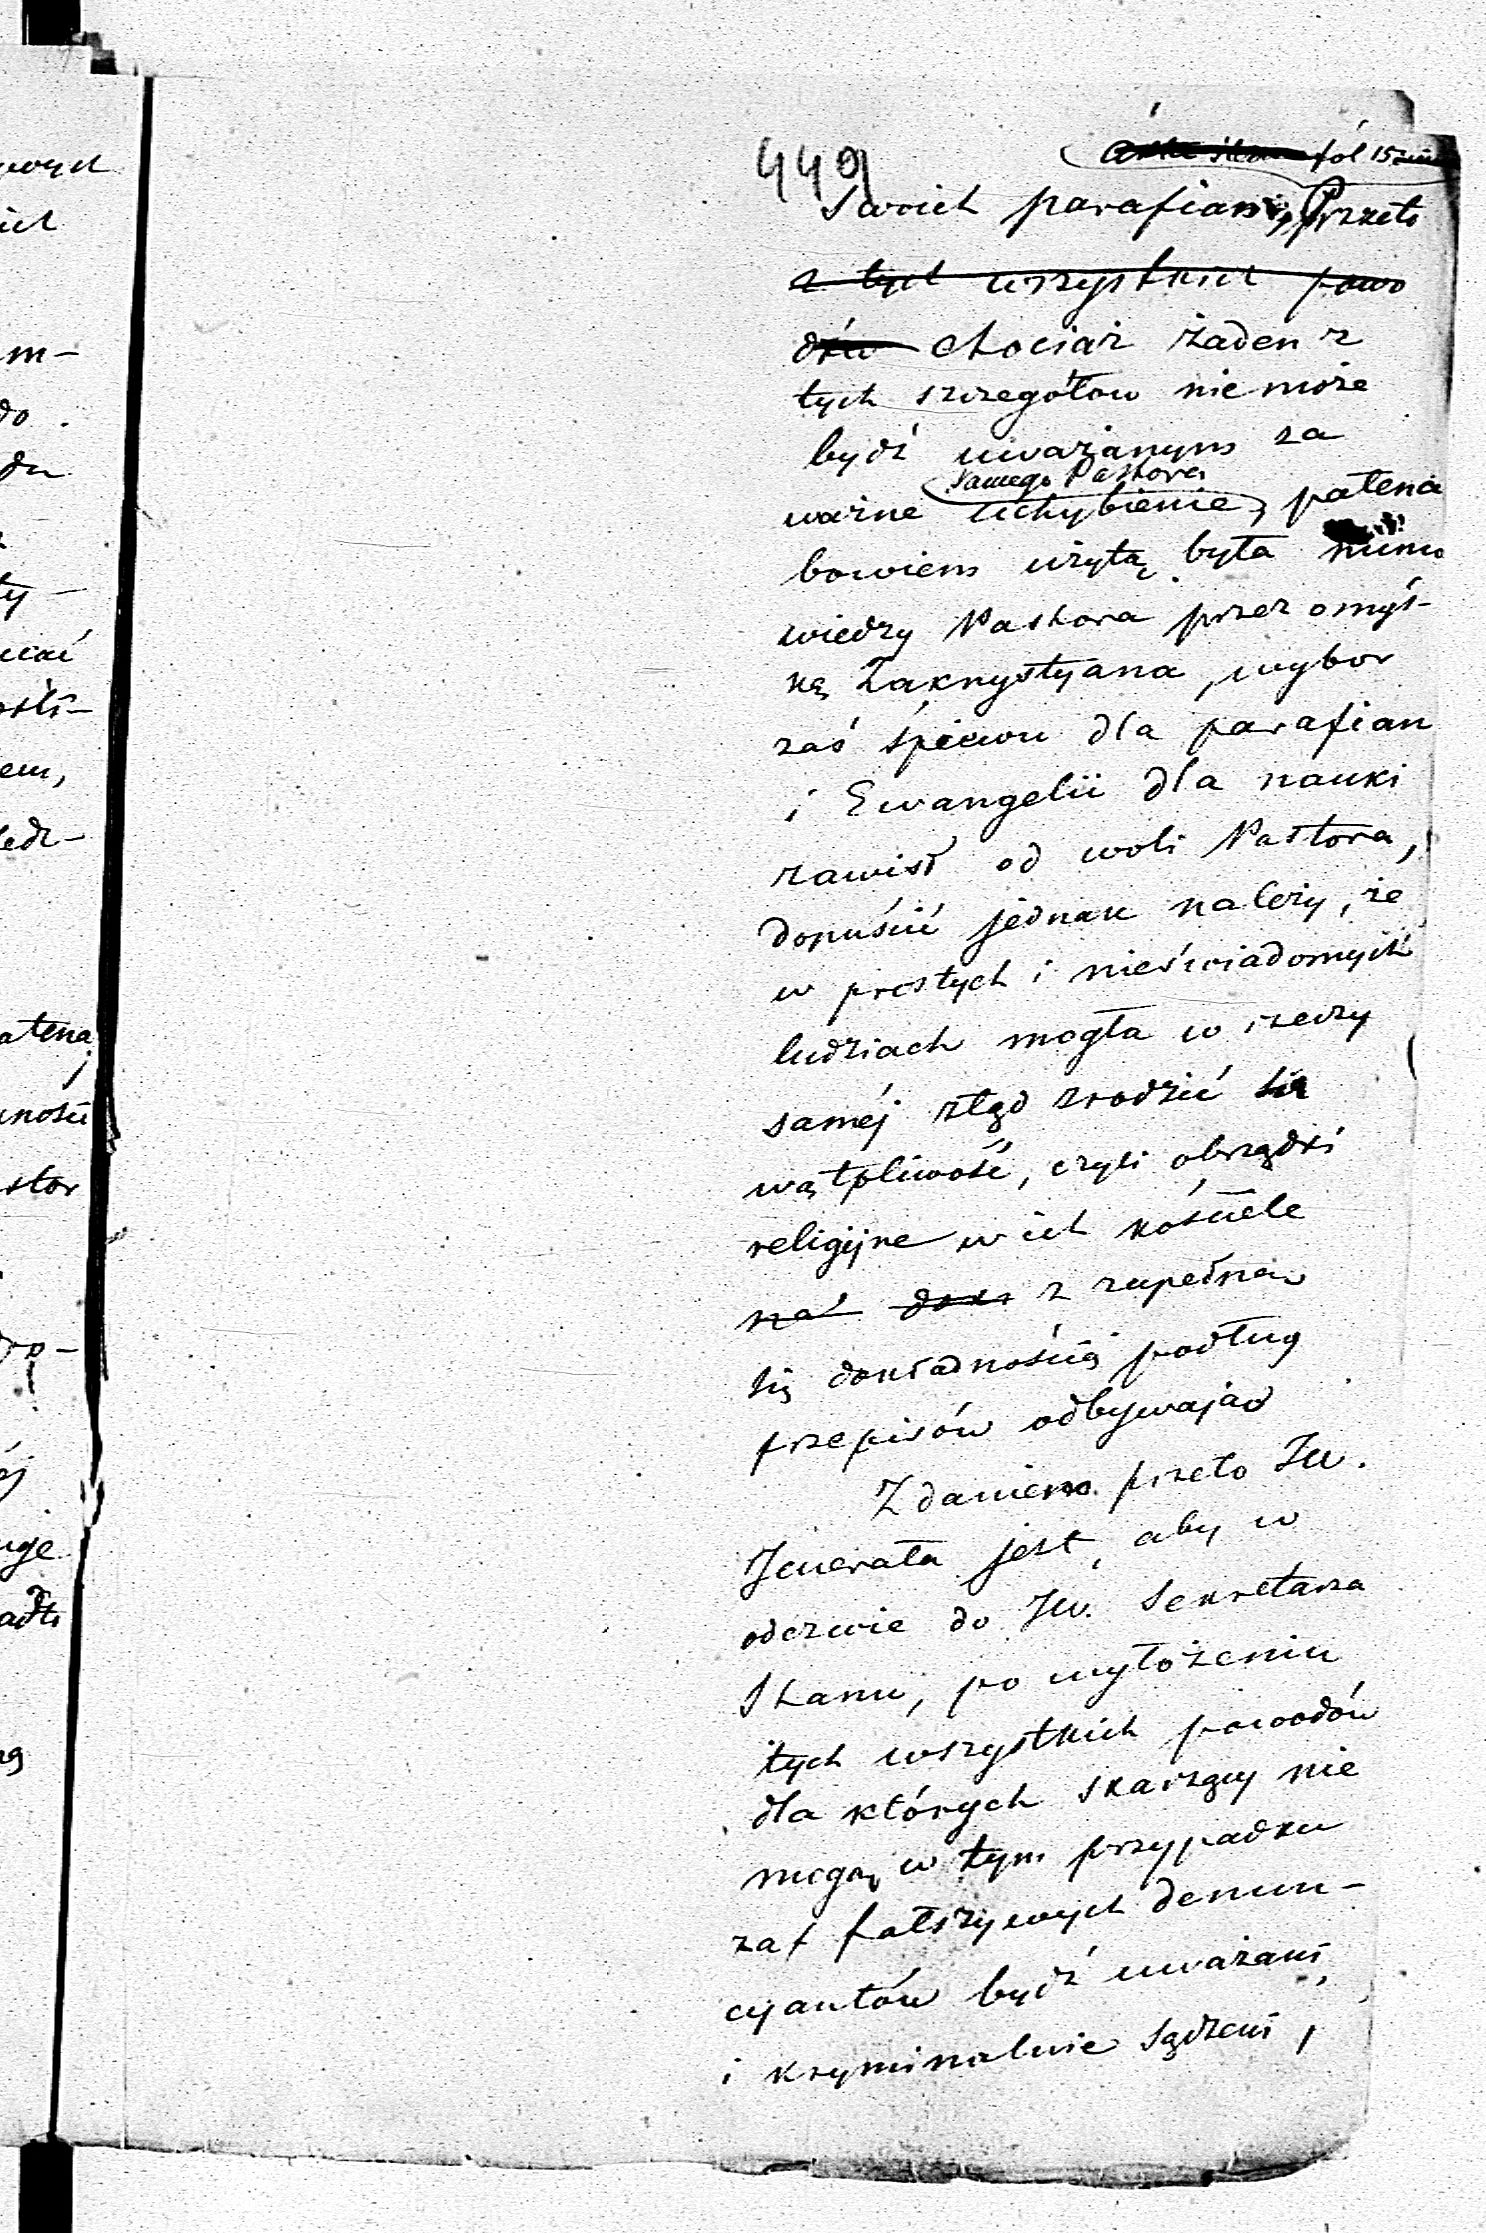 449
fol 15
swoich parafian, Przeto
z tych wszystkich powo
dów chociaż żaden z
tych szczegółow nie może
bydź uważanym za
samego Pastora
ważne uchybienie, patena
bowiem użytą była mimo
wiedzy Pastora przez omył-
kę Zakrystyana, wybor
zaś śpiewu dla parafian
i Ewangelii dla nauki
zawisł od woli Pastora,
dopuścić jednak należy, że
w prostych i nieświadomych
ludziach mogła w rzeczy
saméj ztąd zrodzić się
wątpliwość, czyli obrządki
religijne w ich kościele
z zupełną
dokładnością podług
przepisów odbywają
Zdaniem przeto JW.
Jenerała jest, aby w
odezwie do JW. Sekretarza
Stanu, po wyłożeniu
tych wszystkich powodów
dla których skarżący nie
mogą w tym przypadku
za fałszywych denun-
cyantów bydź uważani
i kryminalnie sądzeni,
atena
stor